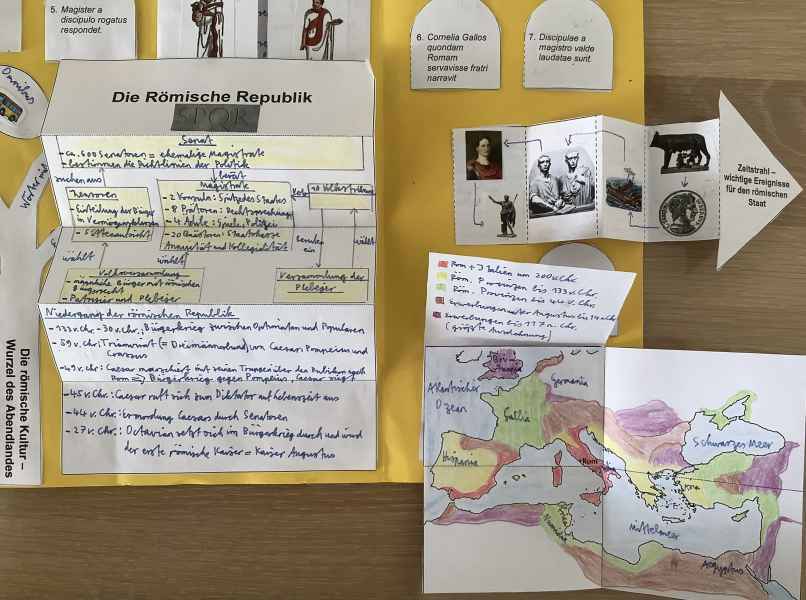 5. Magister a
discipulo rogatus
respondet.
6. Cornelia Gallos
quondam
Romam
servavisse fratri
narravit
7. Discipulae a
magistro valde
laudatae sunt.
Omnibus
Die römische Kultur –
Wurzel des Abendlandes
Die Römische Republik
SPQR
Senat
- ca. 600 Senatoren = ehemalige Magistrate
- bestimmen die Richtlinien der Politik
berät
Zensoren
- Einteilung der Bürger
in Vermögensklassen
- Sittenaufsicht
Magistrate
- 2 Konsuln: Spitze des Staates
- 8 Prätoren: Rechtssprechung
- 4 Ädile: Spiele, Polizei
- 20 Quästoren: Staatskasse
Annuität und Kollegialität
Veto
10 Volkstribune
wählt
wählt
berufen
ein
wählt
Volksversammlung
- männliche Bürger mit römischen
Bürgerrecht
- Patrizier und Plebejer
Versammlung der
Plebejer
Niedergang der römischen Republik
- 133 v. Chr. - 30 v. Chr.: Bürgerkrieg zwischen Optimaten und Popularen
- 59 v. Chr.: Triumvirat (= Dreimännerbund) von Caesar, Pompeius und
Crassus
- 49 v. Chr.: Caesar marschiert mit seinen Truppen über den Rubikon nach
Rom => Bürgerkrieg gegen Pompeius, Caesar siegt
- 45 v. Chr.: Caesar ruft sich zum Diktator auf Lebenszeit aus
- 44 v. Chr.: Ermordung Caesars durch Senatoren
- 27 v. Chr.: Octavian setzt sich im Bürgerkrieg durch und wird
der erste römische Kaiser = Kaiser Augustus
Zeitstrahl –
wichtige Ereignisse
für den römischen
Staat
Rom + Italien um 200 v. Chr.
Röm. Provinzen bis 133 v. Chr.
Röm. Provinzen bis 44 v. Chr.
Erwerbungen unter Augustus bis 14 n. Chr.
Erwerbungen bis 117 n. Chr.
(größte Ausdehnung)
Britannia
Germania
Atlantischer
Ozean
Gallia
Schwarzes Meer
Hispania
Rom
Mittelmeer
Aegyptus